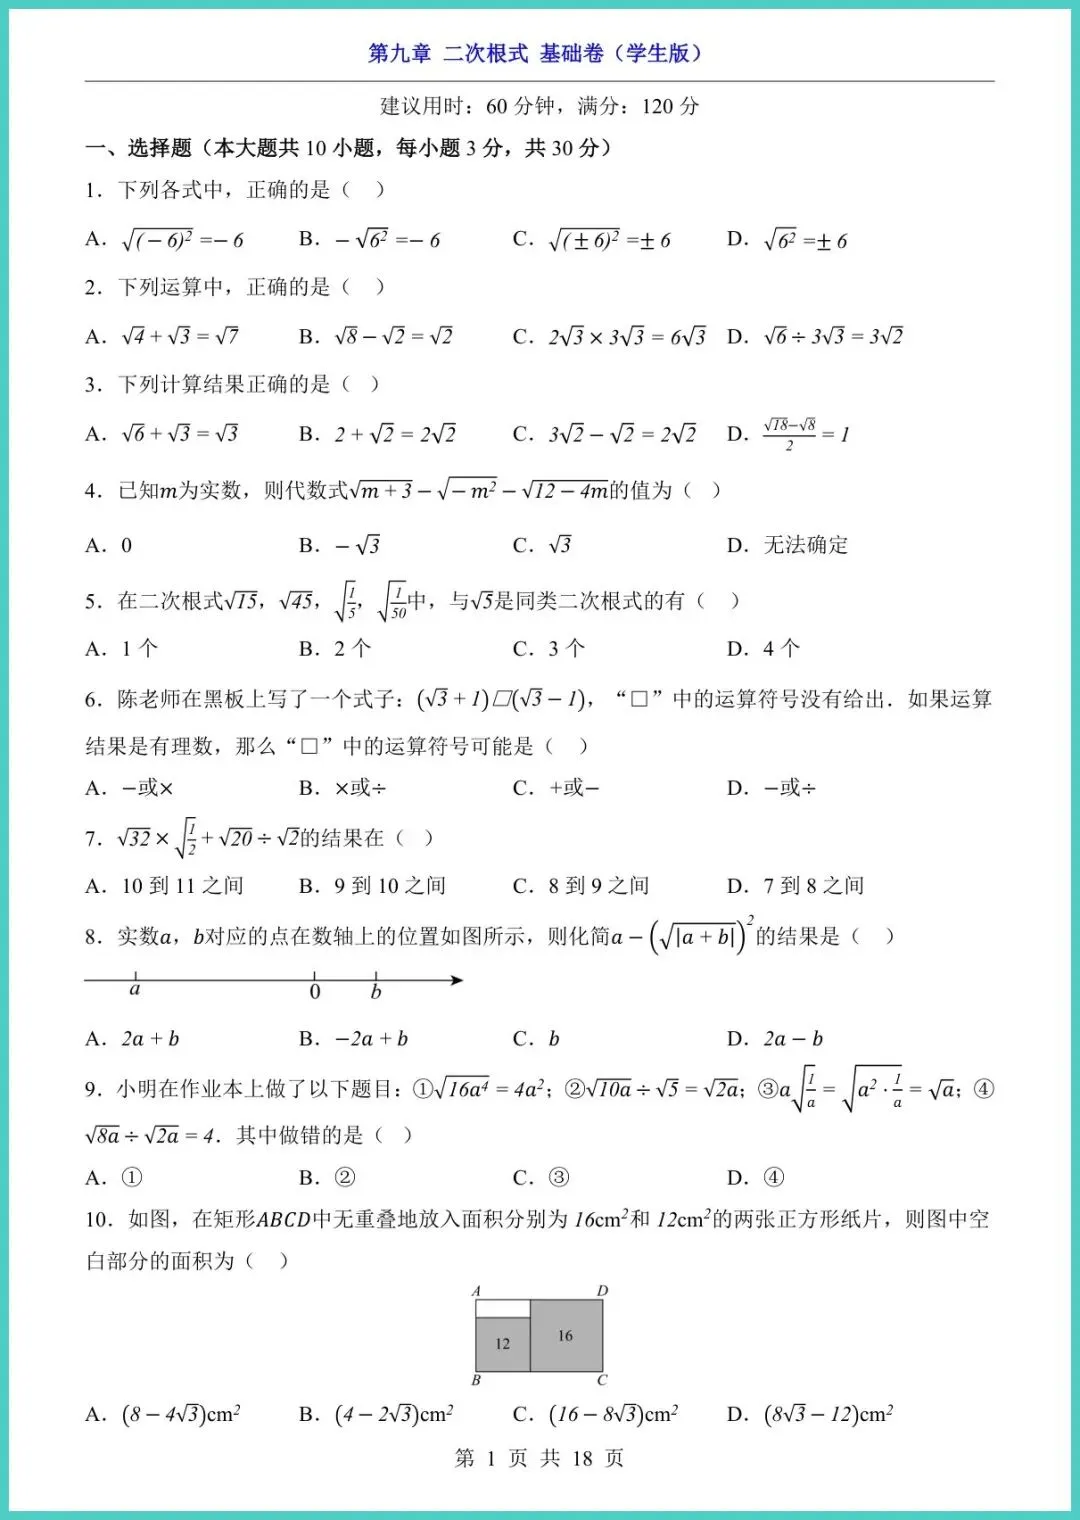 第九章 二次根式 基础卷（学生版）
建议用时：60 分钟，满分：120 分
一、选择题（本大题共 10 小题，每小题 3 分，共 30 分）
1．下列各式中，正确的是（ ）
A．√(（－6）²) =－6 B．－√(6²) =－6 C．√((±6)²) =±6 D．√(6²) =±6
2．下列运算中，正确的是（ ）
A．√4 + √3 = √7 B．√8 − √2 = √2 C．2√3 × 3√3 = 6√3 D．√6 ÷ 3√3 = 3√2
3．下列计算结果正确的是（ ）
A．√6 + √3 = √3 B．2 + √2 = 2√2 C．3√2 − √2 = 2√2 D．(√18−√8)/2 = 1
4．已知m为实数，则代数式√(m + 3) − √(−m²) − √(12 − 4m)的值为（ ）
A．0 B．−√3 C．√3 D．无法确定
5．在二次根式√15，√45，√(1/5)，√(1/50)中，与√5是同类二次根式的有（ ）
A．1 个 B．2 个 C．3 个 D．4 个
6．陈老师在黑板上写了一个式子：(√3 + 1)□(√3 − 1)，“□”中的运算符号没有给出．如果运算
结果是有理数，那么“□”中的运算符号可能是（ ）
A．−或× B．×或÷ C．+或− D．−或÷
7．√32 × √(1/2) + √20 ÷ √2的结果在（ ）
A．10 到 11 之间 B．9 到 10 之间 C．8 到 9 之间 D．7 到 8 之间
8．实数a，b对应的点在数轴上的位置如图所示，则化简a − (√|a + b|)²的结果是（ ）
a 0 b
A．2a + b B．−2a + b C．b D．2a − b
9．小明在作业本上做了以下题目：①√(16a⁴) = 4a²；②√(10a) ÷ √5 = √(2a)；③a√(1/a) = √(a² · 1/a) = √a；④
√(8a) ÷ √(2a) = 4．其中做错的是（ ）
A．① B．② C．③ D．④
10．如图，在矩形ABCD中无重叠地放入面积分别为 16cm²和 12cm²的两张正方形纸片，则图中空
白部分的面积为（ ）
A D
12 16
B C
A．(8 − 4√3)cm² B．(4 − 2√3)cm² C．(16 − 8√3)cm² D．(8√3 − 12)cm²
第 1 页 共 18 页